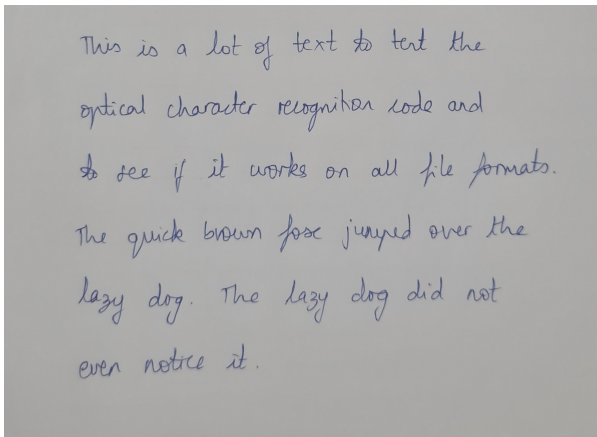 This is a lot of text to test the
optical character recognition code and
to see if it works on all file formats.
The quick brown fox jumped over the
lazy dog. The lazy dog did not
even notice it.